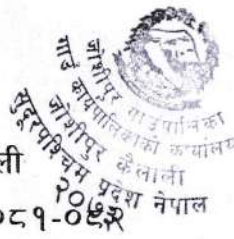 जोशीपुर गाउँपालिका
गाउँ कार्यपालिकाको कार्यालय
जोशीपुर कैलाली
सुदूरपश्चिम प्रदेश नेपाल
ली
२०७३
०८१-०८२